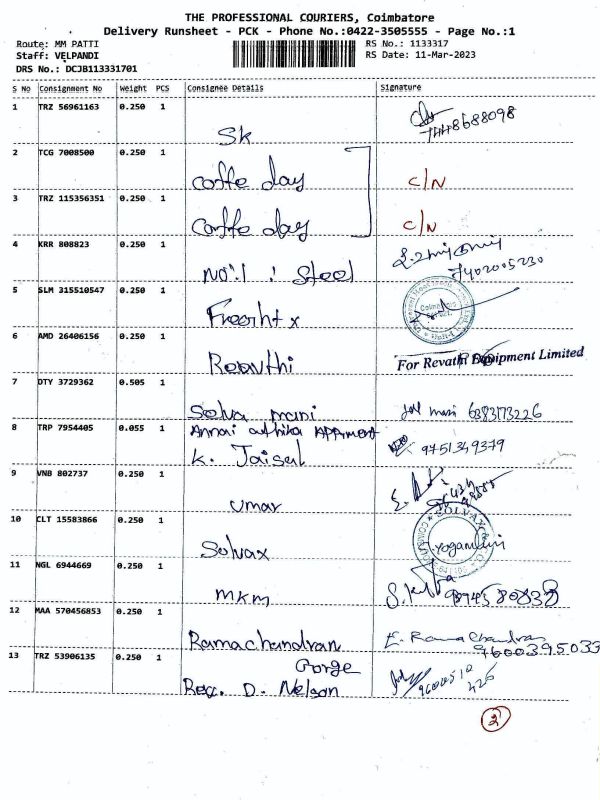 THE PROFESSIONAL COURIERS, Coimbatore
Delivery Runsheet - PCK - Phone No.:0422-3505555 - Page No.:1
Route: MM PATTI
RS No.: 1133317
Staff: VELPANDI
RS Date: 11-Mar-2023
DRS No.: DCJB113331701
S No Consignment No Weight PCS Consignee Details Signature
1 TRZ 56961163 0.250 1
SK 7448688098
2 TCG 7008500 0.250 1
Coffe day C/N
3 TRZ 115356351 0.250 1
Coffe day C/N
4 KRR 808823 0.250 1
Steel 7402005230
5 SLM 315510547 0.250 1
Coimbatore
6 AMD 26406156 0.250 1
Revathi For Revathi Equipment Limited
7 DTY 3729362 0.505 1
Selva mani 6383173226
8 TRP 7954405 0.055 1
Annai
K. Jaisul 9751349379
9 VNB 802737 0.250 1
Umar
10 CLT 15583866 0.250 1
Solvax
11 NGL 6944669 0.250 1
MKM
12 MAA 570456853 0.250 1
Ramachandran E. Rama Chandran
9600395033
13 TRZ 53906135 0.250 1
D. Nelson
2